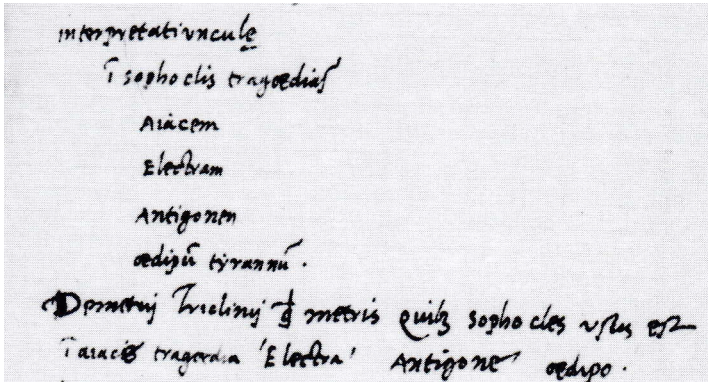 interpretatiunculę
ī sophoclis tragœdias
Aiacem
Electram
Antigonen
œdipū tyrannū .
Demetrij Triclinij d metris quibꝫ sophocles usus est
ī aiacis tragœdia 'Electra' Antigone œdipo .